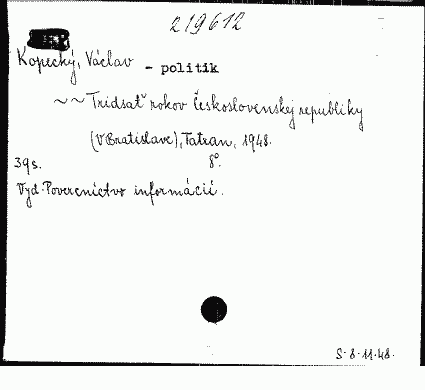 219612
Kopecký, Václav - politik
~~ Tridsať rokov Československej republiky
(V Bratislave), Tatran, 1948.
39s. 8°.
Vyd. Povereníctvo informácií.
S-8-11-48.